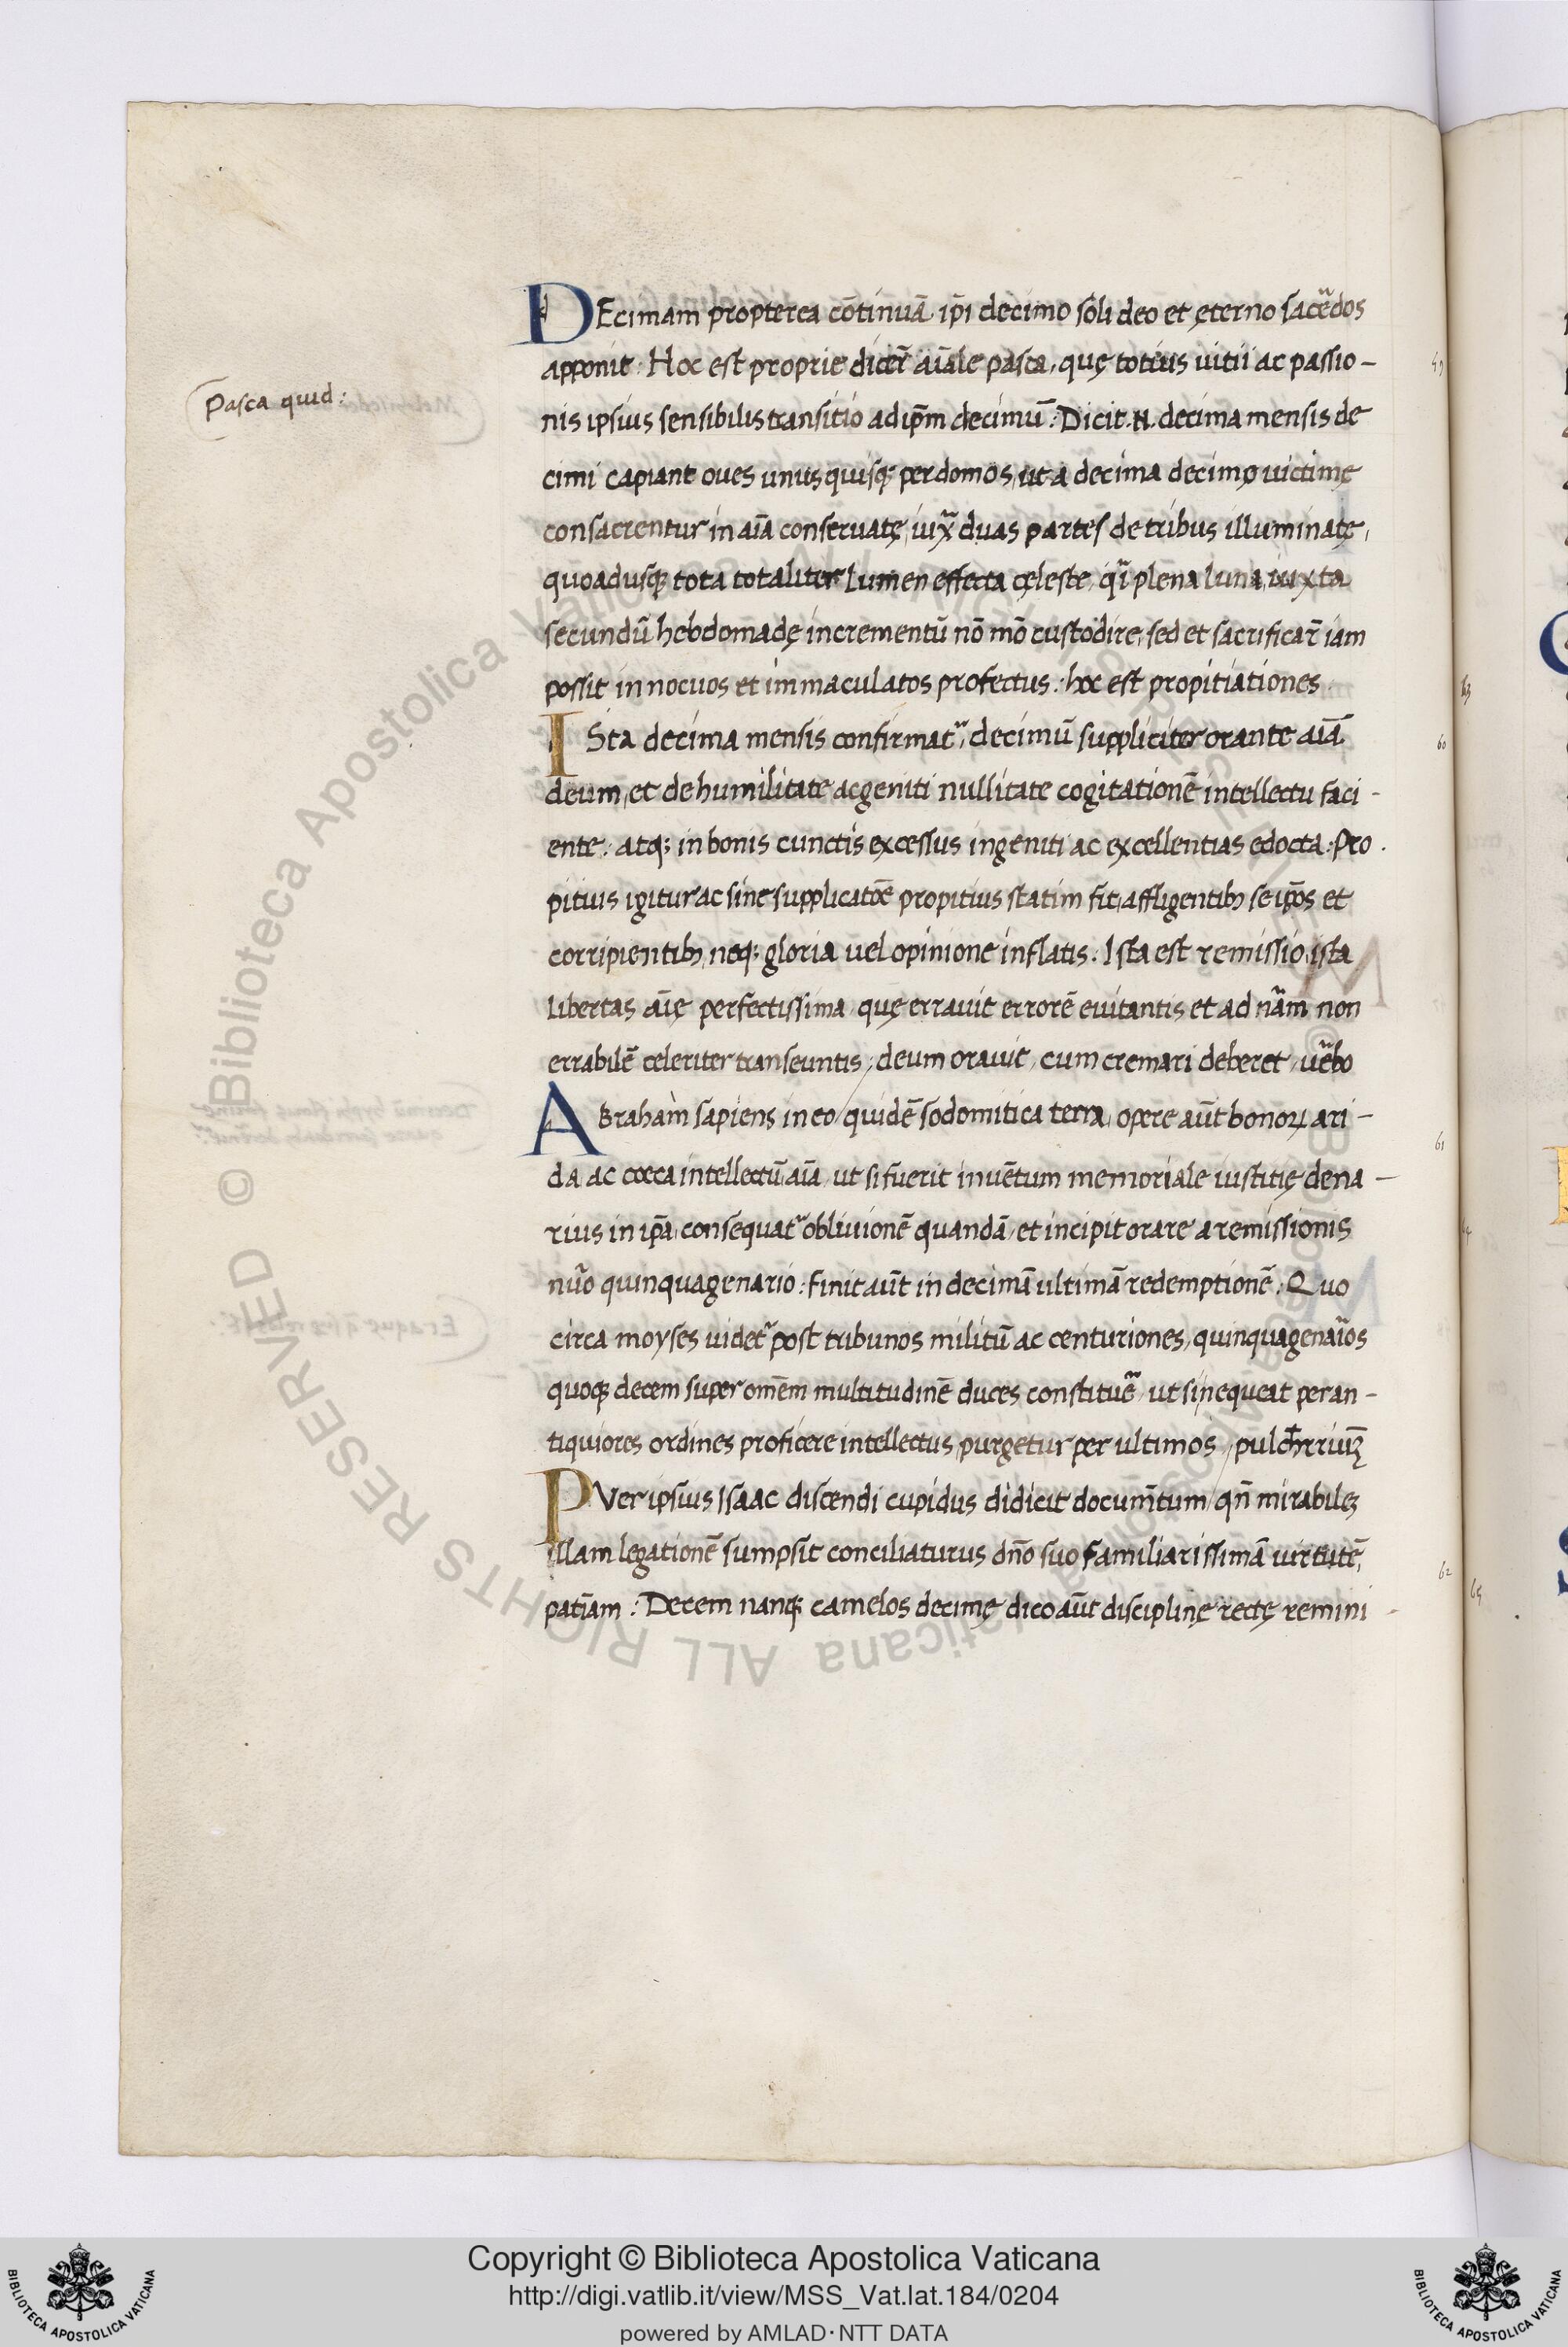 Pasca quid:
DEcimam propterea cōtinuā ip̄i decimo soli deo et ęterno sac̄edos
apponit: Hoc est proprie dicer̄ aīale pasca, quę totius uitii ac passio-
nis ipsius sensibilis transitio ad ip̄m decimū: Dicit .N. decima mensis de
cimi capiant oues unusquisq; per domos, ut a decima decimo uictimę
consacrentur in aīa conseruatę, iux̄ duas partes de tribus illuminatę,
quoadusq; tota totaliter lumen effecta cęleste, qī plena luna, iuxta
secundū hebdomadę incrementū nō mō custodire, sed et sacrificar̄ iam
possit innocuos et immaculatos profectus: hoc est propitiationes
ISta decima mensis confirmat᷑, decimū suppliciter orante aīā
deum, et de humilitate ac geniti nullitate cogitationē intellectu faci-
ente: atq; in bonis cunctis excessus ingeniti ac excellentias edocta: Pro
pitius igitur ac sine supplicatōe propitius statim fit, affligentib; se ip̄os et
corripientib; neq; gloria uel opinione inflatis: Ista est remissio, ista
libertas aīę perfectissima quę errauit errorē euitantis et ad nām non
errabilē celeriter transeuntis, deum orauit, cum cremari deberet, ūebo
ABraham sapiens in eo quidē sodomitica terra, opere aūt bonoꝝ ari-
da ac cœca intellectū aīa ut si fuerit inuēntum memoriale iustitię dena-
rius in ip̄a, consequat᷑ obliuionē quandā, et incipit orare a remissionis
nūo quinquagenario: finit aūt in decimā ultimā redemptionē: Quo
circa moyses uidet᷑ post tribunos militū ac centuriones, quinquagenaīos
quoq; decem super omēm multitudinē duces constituē ut si nequeat per an-
tiquiores ordines proficere intellectus, purgetur per ultimos, pulch̄rriuꝫ
PUer ipsius Isaac discendi cupidus didicit docum̄tum, qn̄ mirabileꝫ
illam legationē sumpsit conciliaturus dn̄o suo familiarissimā uirtutē,
patīam: Decem nanq; camelos decimę dico aūt disciplinę rectę remini
59
60
61
62
63
65
Copyright © Biblioteca Apostolica Vaticana
http://digi.vatlib.it/view/MSS_Vat.lat.184/0204
powered by AMLAD·NTT DATA
BIBLIOTECA APOSTOLICA VATICANA
BIBLIOTECA APOSTOLICA VATICANA
© Biblioteca Apostolica Vaticana ALL RIGHTS RESERVED